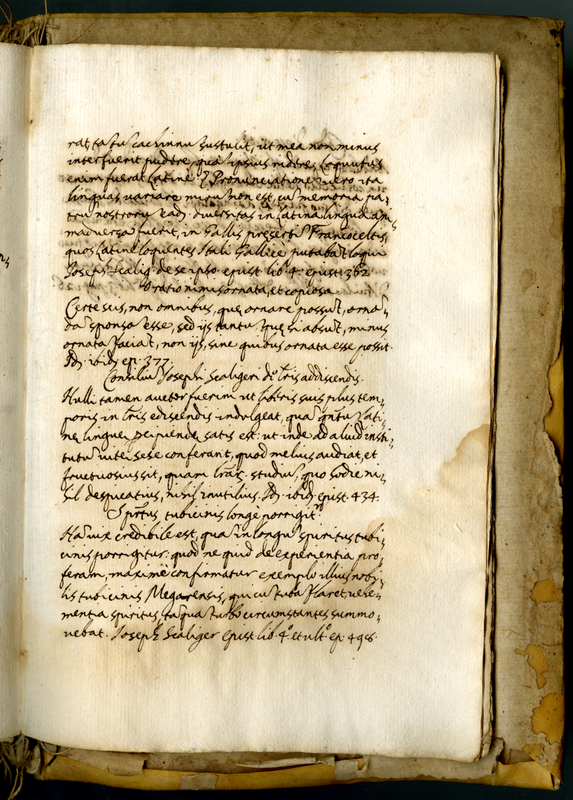 rat, tātū cachinnū sustulit, ut mea non minus
interfuerit pudere, quā ipsius ridere; Loquutus
enim fuerat Latine. Pronunciatione vero ita
linguas variare mirū non est, cū memoria pa-
trū nostrorū eadē diversitas in Latina lingua ani-
madversa fuerit, in Gallis presertī Francoceltis,
quos Latine loquentes Itali Gallicè putabāt loqui
Joseph. Scalig. de se ipso epist. lib. 4. epist. 362.
Oratio nimis ornata, et copiosa
Certè sus, non omnibus, que ornare possūt, ornā-
da sponsa esse, sed ijs tantū que si absūt, minus
ornata faciāt, non ijs, sine quibus ornata esse possit.
Id. ibid. ep. 377.
Consiliū Joseph Scaligeri de lr̄is addiscendis.
Nulli tamen auctor fuerim ut liberis suis plus tem-
poris in lr̄is ediscendis indulgeat, quā qn̄tū Lati-
ne lingue percipiende satis est: ut inde ad aliud insti-
tutū vite sese conferant, quod melius audiat, et
fructuosius sit, quam lr̄arū studiū, quo hodie ni-
hil despicatius, nihil inutilius. Id. ibid. epist. 434.
Spirtus tubicinis longè porrigitr
Haūd vix credibile est, quā in longū spiritus tubi-
cinis porrigitur: quod ne quid de experientia pro-
feram, maximè confirmatur exemplo illius nobi-
lis tubicinis Megarensis, qui cū tuba flaret vehe-
mentia spiritus, tāquā turbo circumstantes summo-
vebat. Joseph Scaliger epist. lib. 4o et ulto ep. 498.